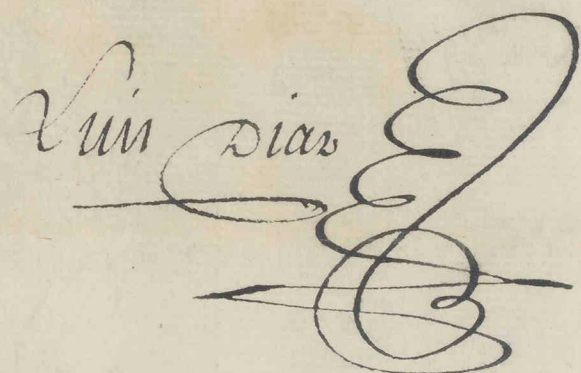 Luis Diaz